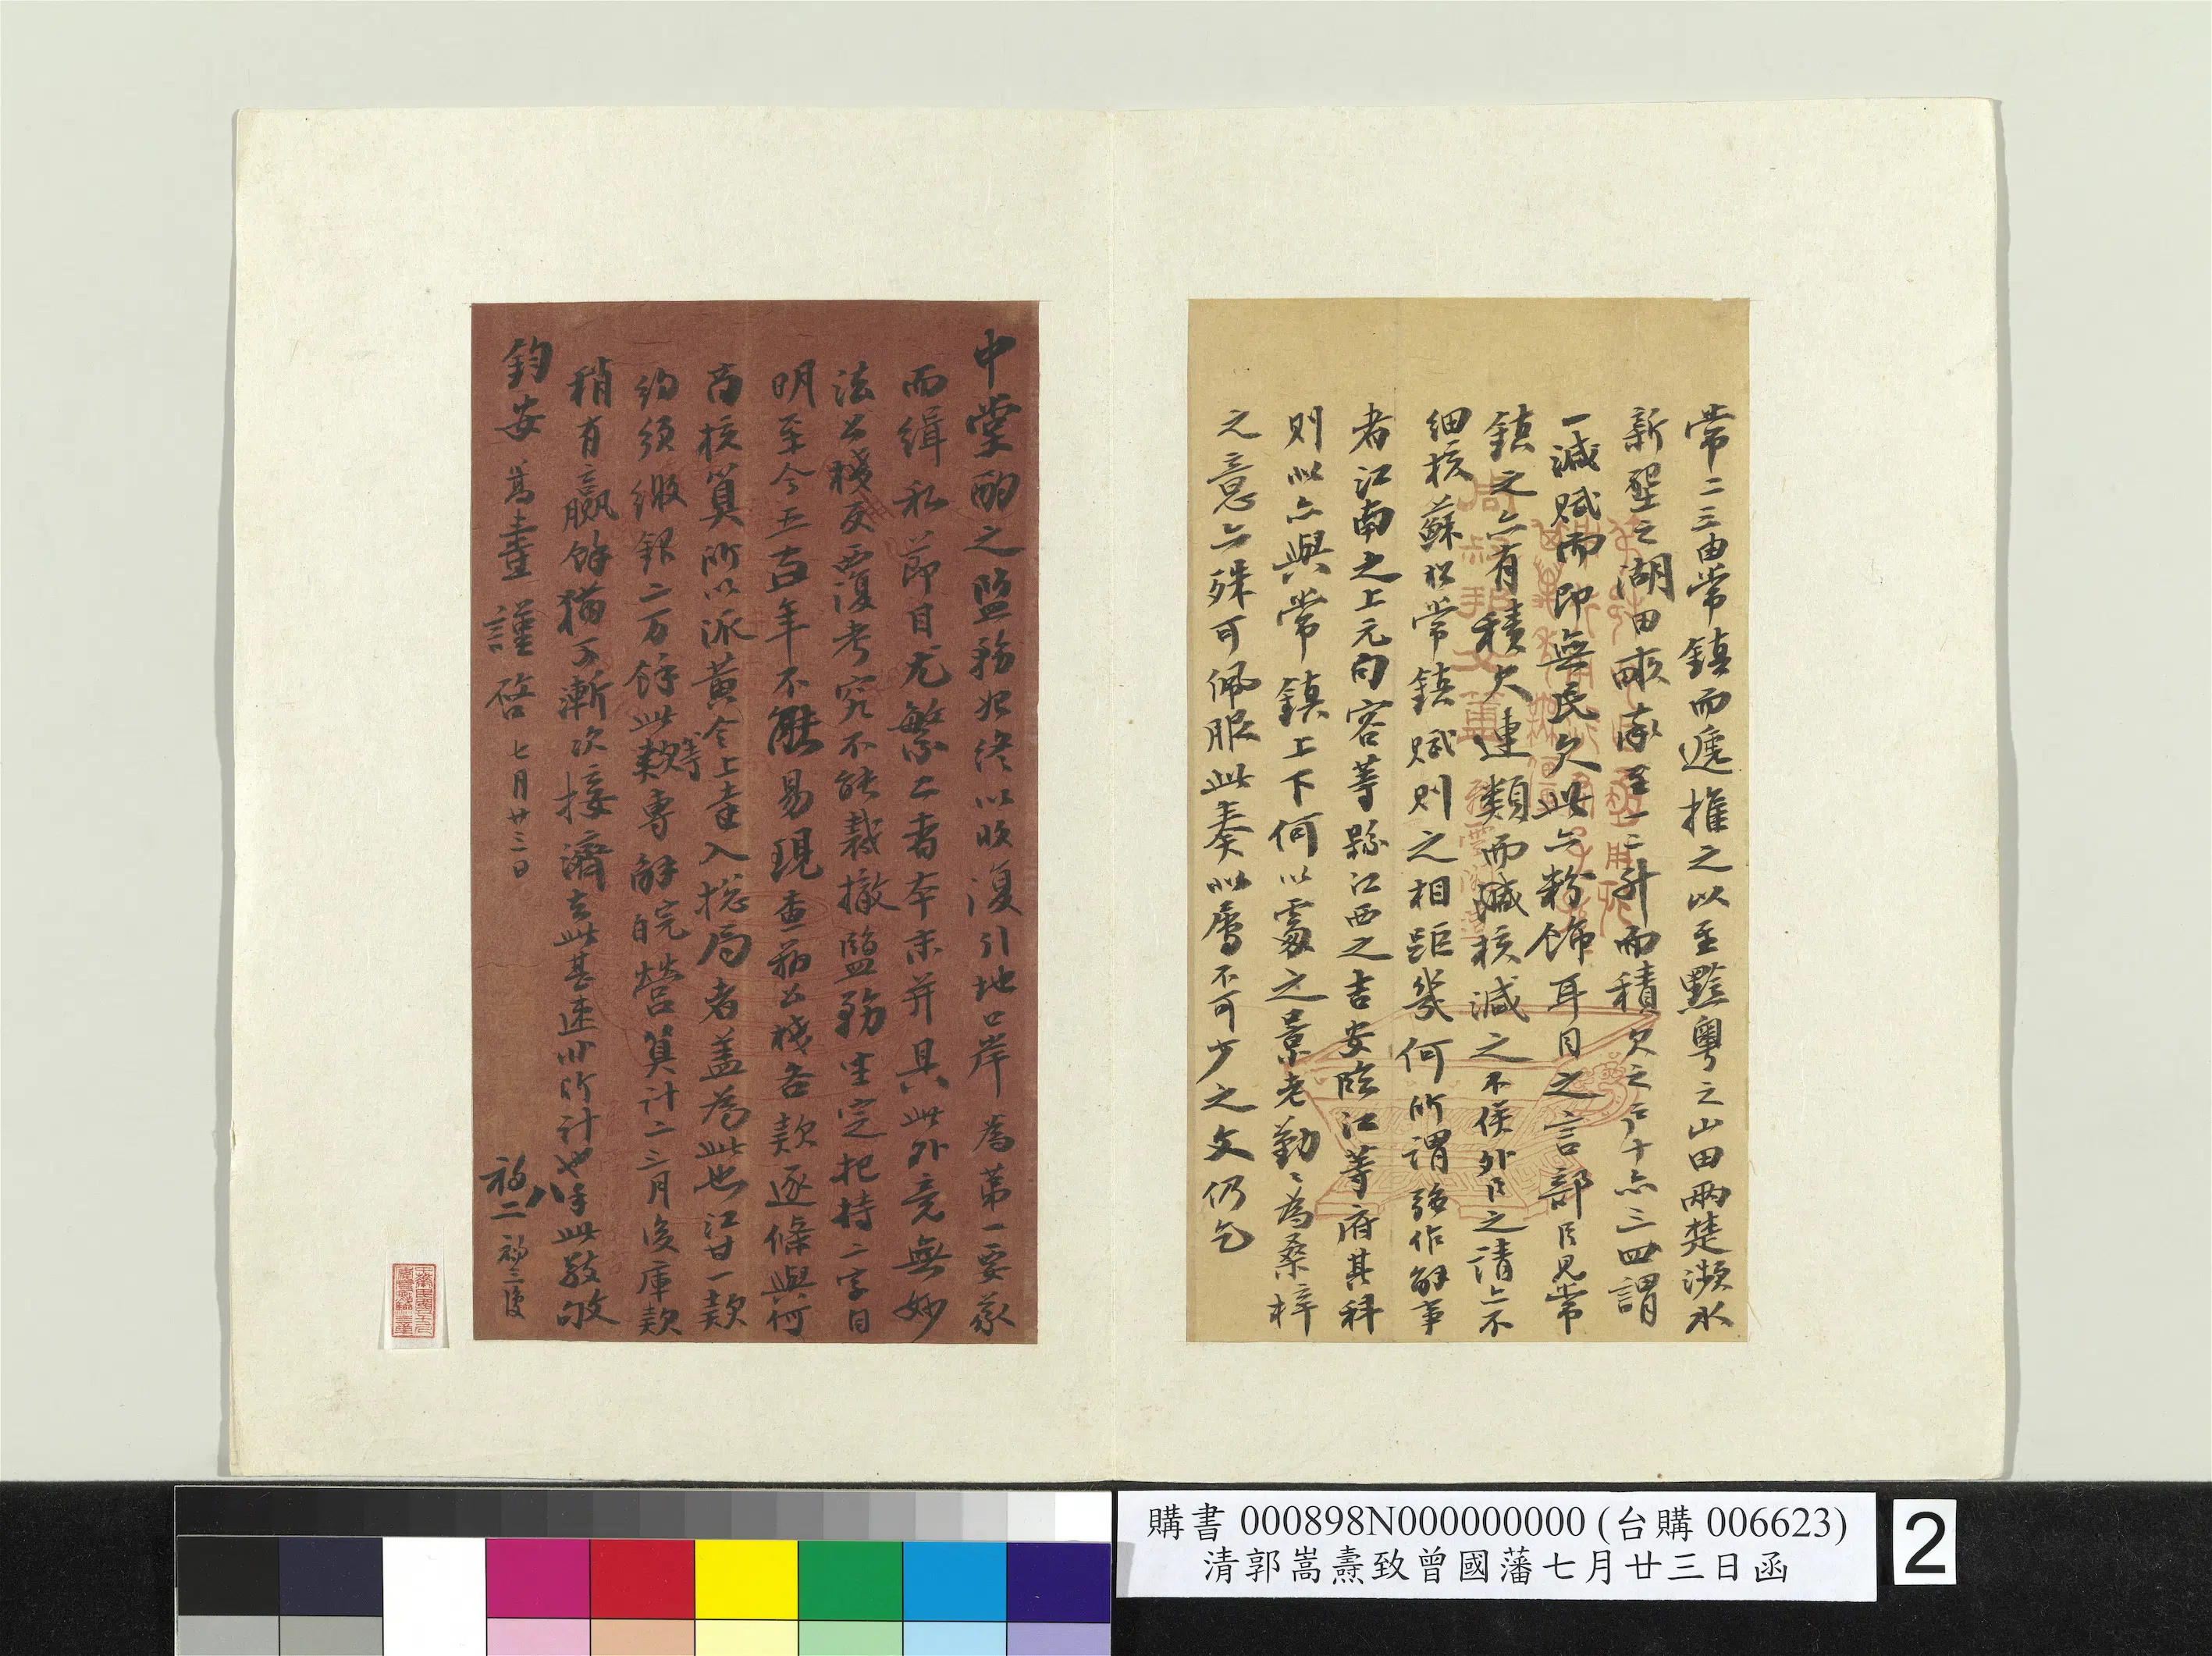 常二三由常鎮而遞推之以至黔粵之山田兩楚瀕水
新墾之湖田畝奉至一二升而積欠之戶十亦三四謂
一減賦而即無民欠此亦粉飾耳目之言部臣見常
鎮之亦有積欠連類而議核減之不俟外臣之請亦不
細核蘇松常鎮賦則之相距幾何所謂強作解事
者江南之上元句容等縣江西之吉安臨江等府其科
則似亦與常鎮上下何以處之景老勤勤為桑梓
之意亦殊可佩服此奏似屬不可少之文仍乞
中堂酌之鹽務始終以收復引地口岸為第一要義
而緝私節目尤繁二者本末并具此外竟無妙
法公棧反覆考究不能裁撤鹽務生定把持二字自
明至今五百年不能易現查辦公棧各款逐條與何
商核算所以派黃令上達入總局者蓋為此也江甘一款
約須繳銀二万餘此款專解皖營算計二三月後庫款
稍有贏餘猶可漸次接濟此甚速非所計也手此敬敂
鈞安 嵩燾謹啓 七月廿三日
初八
初二 初三復
購書 000898N000000000 (台購 006623)
清郭嵩燾致曾國藩七月廿三日函
2